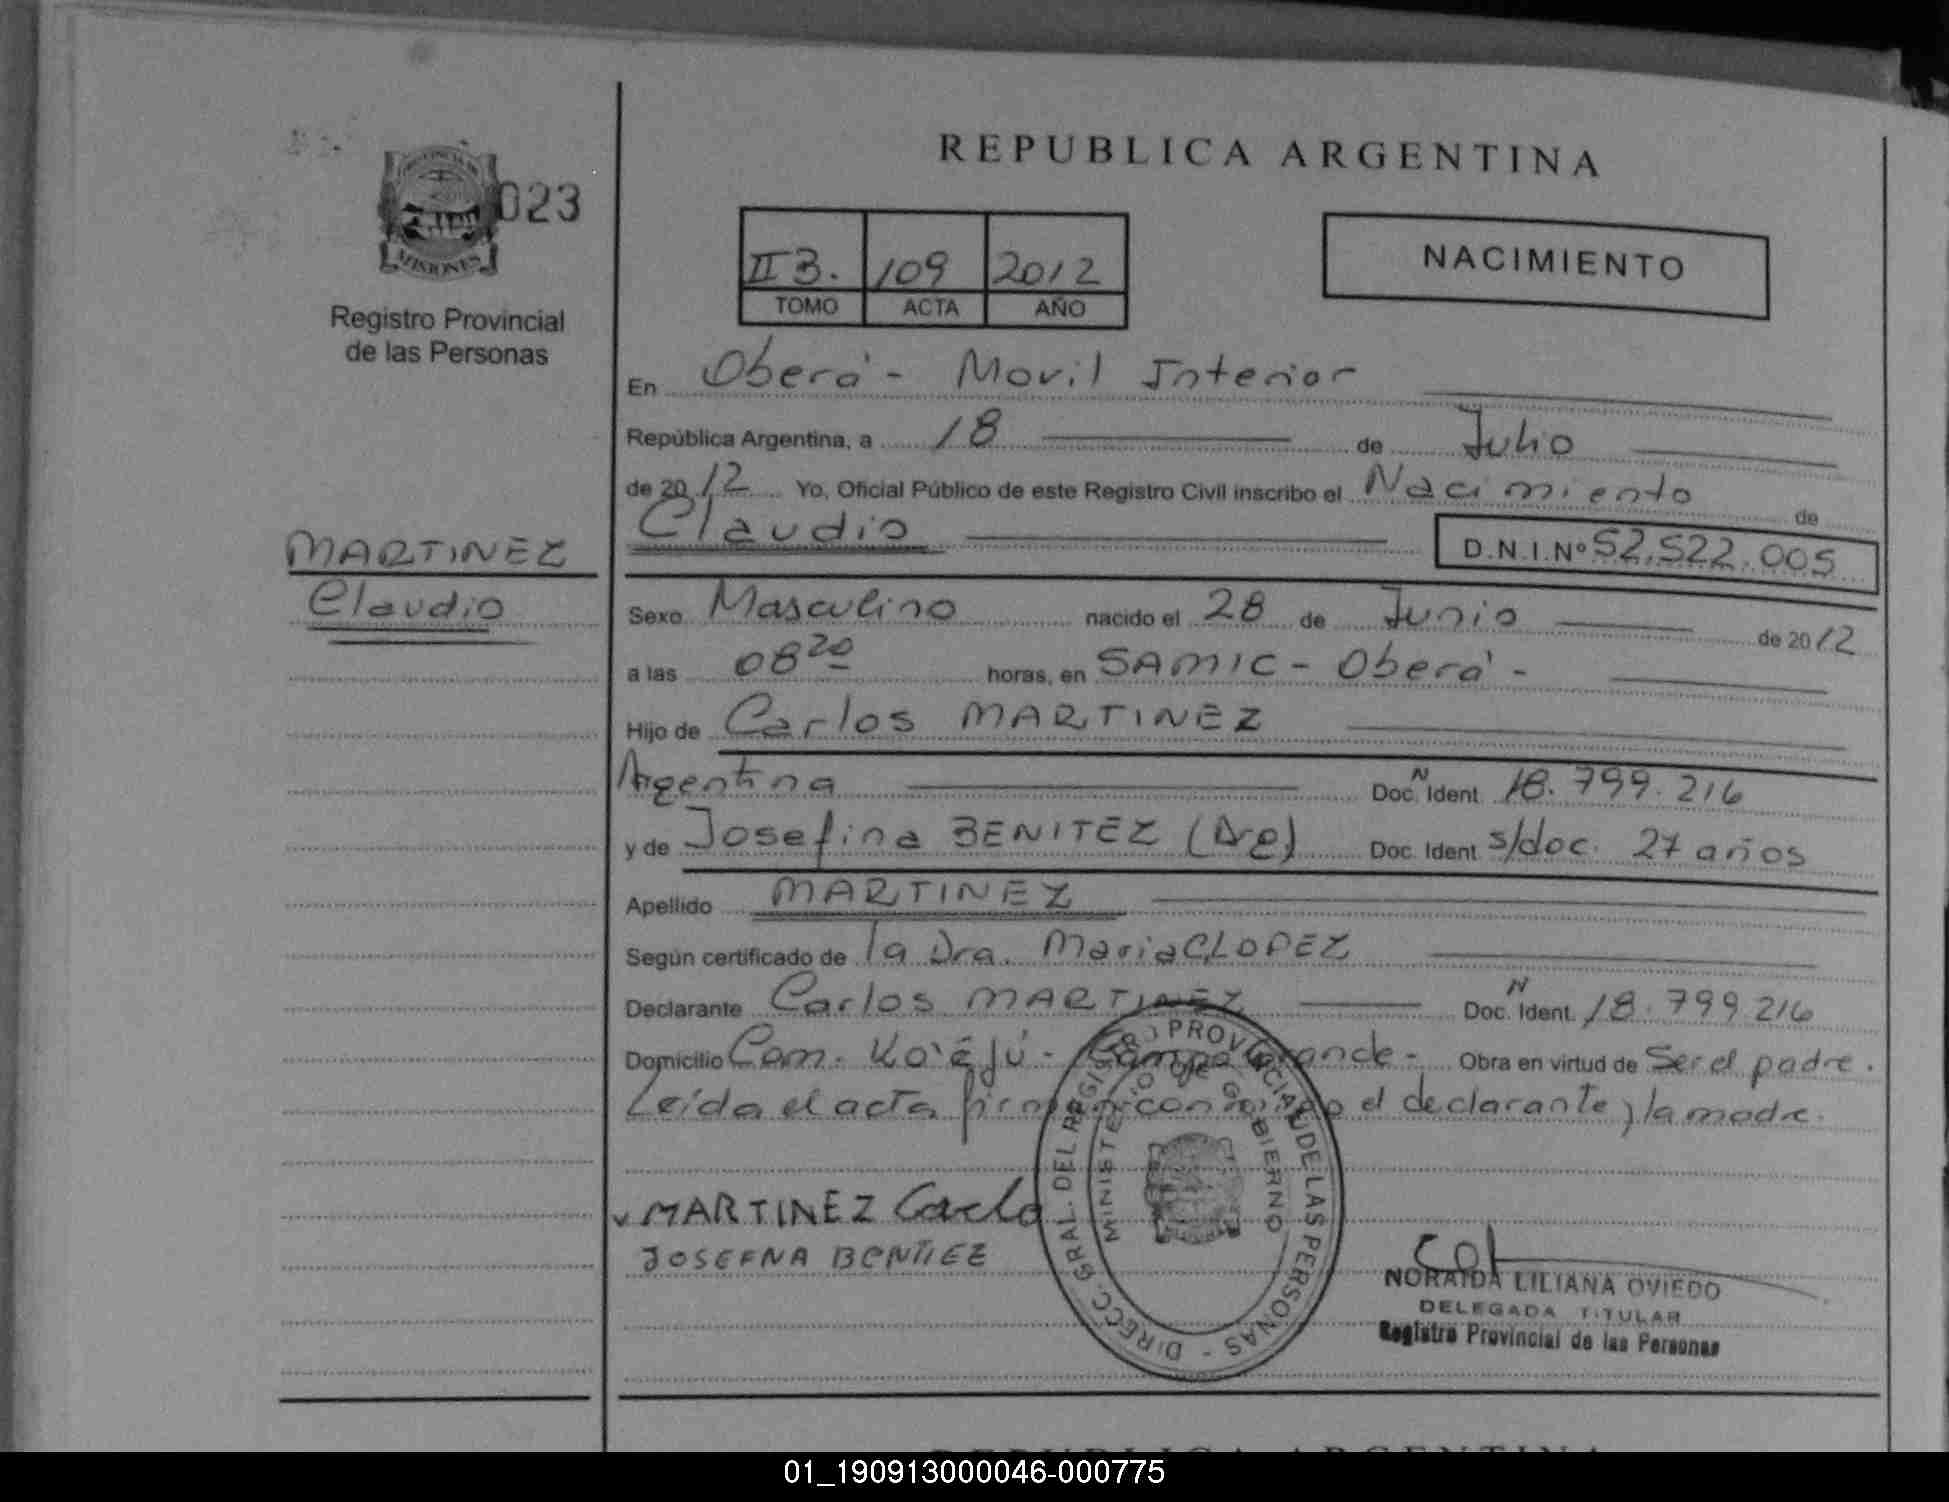 REPUBLICA ARGENTINA
023
MISIONES
Registro Provincial
de las Personas
II B. 109 2012
TOMO ACTA AÑO
NACIMIENTO
En Oberá - Movil Interior
República Argentina, a 18 de Julio
de 2012 Yo, Oficial Público de este Registro Civil inscribo el Nacimiento de
Claudio D.N.I.Nº 52.522.005
MARTINEZ
Claudio
Sexo Masculino nacido el 28 de Junio de 2012
a las 08 20 horas, en SAMIC - Oberá -
Hijo de Carlos MARTINEZ
Argentina Doc. N Ident. 18.799.216
y de Josefina BENITEZ (Arg) Doc. Ident. s/doc. 27 años
Apellido MARTINEZ
Según certificado de la Dra. Maria C. LOPEZ
Declarante Carlos MARTINEZ Doc. N Ident. 18.799.216
Domicilio Com. Ko'ẽjú - Campo Grande - Obra en virtud de Ser el padre.
Leída el acta, firman conmigo el declarante y la madre.
MARTINEZ Carlo
JOSEFNA BENITEZ
DIRECC. GRAL. DEL REGISTRO PROVINCIAL DE LAS PERSONAS -
MINISTERIO DE GOBIERNO
NORAIDA LILIANA OVIEDO
DELEGADA TITULAR
Registro Provincial de las Personas
REPUBLICA ARGENTINA
01_190913000046-000775